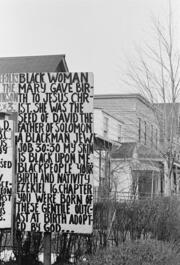 BLACK WOMAN
MARY, GAVE BIR-
TH TO JESUS CHR-
IST. SHE WAS THE
SEED OF DAVID THE
FATHER OF SOLOMON
A BLACK MAN.
JOB 30:30 MY SKIN
IS BLACK UPON ME
BLACK PEOPLE YOUR
BIRTH AND NATIVITY
EZEKIEL 16 CHAPTER
YOU WERE BORN OF
GENTILE
AST AT BIRTH ADOPT
ED BY GOD